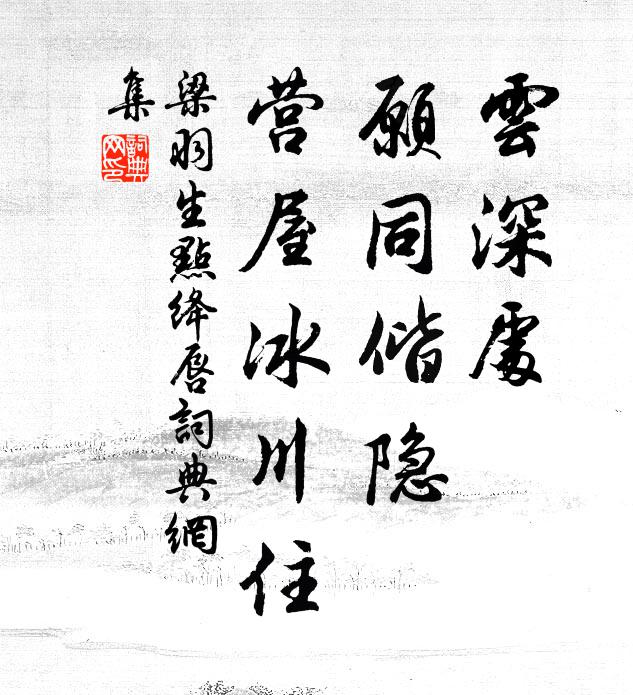 雲深處
願同偕隐
营屋冰川住
梁羽生點绛唇詞典網
集
詞典
网印